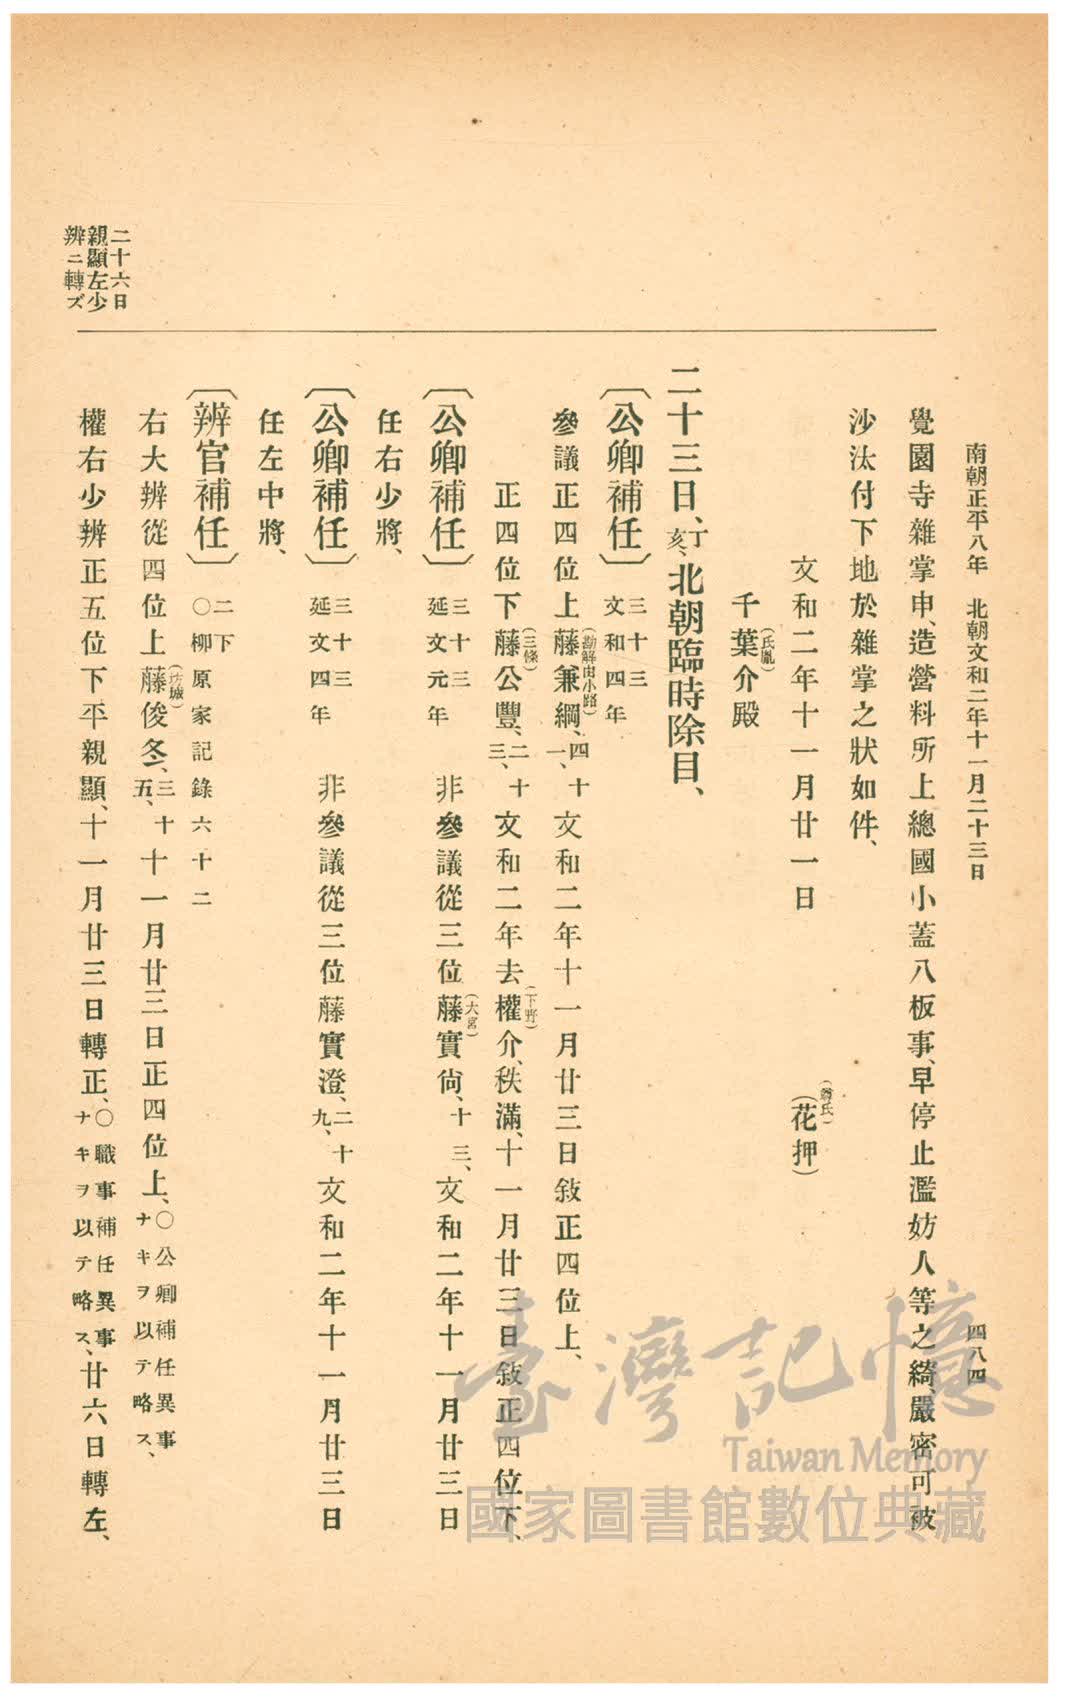 南朝正平八年　北朝文和二年十一月二十三日
四八四
覺園寺雜掌申、造營料所上總國小蓋八板事、早停止濫妨人等之綺、嚴密可被
沙汰付下地於雜掌之狀如件、
文和二年十一月廿一日
（尊氏）
（花押）
（氏胤）
千葉介殿
二十三日、丁亥、北朝臨時除目、
〔公卿補任〕三十三　文和四年
參議正四位上藤兼綱、（勘解由小路）四十一、文和二年十一月廿三日敍正四位上、
正四位下藤公豐、（三條）二十三、文和二年去權介、（下野）秩滿、十一月廿三日敍正四位下、
〔公卿補任〕三十三　延文元年　非參議從三位藤實尙、（大宮）十三、文和二年十一月廿三日
任右少將、
〔公卿補任〕三十三　延文四年　非參議從三位藤實澄、二十九、文和二年十一月廿三日
任左中將、
〔辨官補任〕二下　○柳原家記錄六十二
右大辨從四位上藤俊冬、（坊城）三十五、十一月廿三日正四位上、○公卿補任異事ナキヲ以テ略ス、
權右少辨正五位下平親顯、十一月廿三日轉正、○職事補任異事ナキヲ以テ略ス、廿六日轉左、
二十六日
親顯左少
辨ニ轉ズ
臺灣記憶
Taiwan Memory
國家圖書館數位典藏